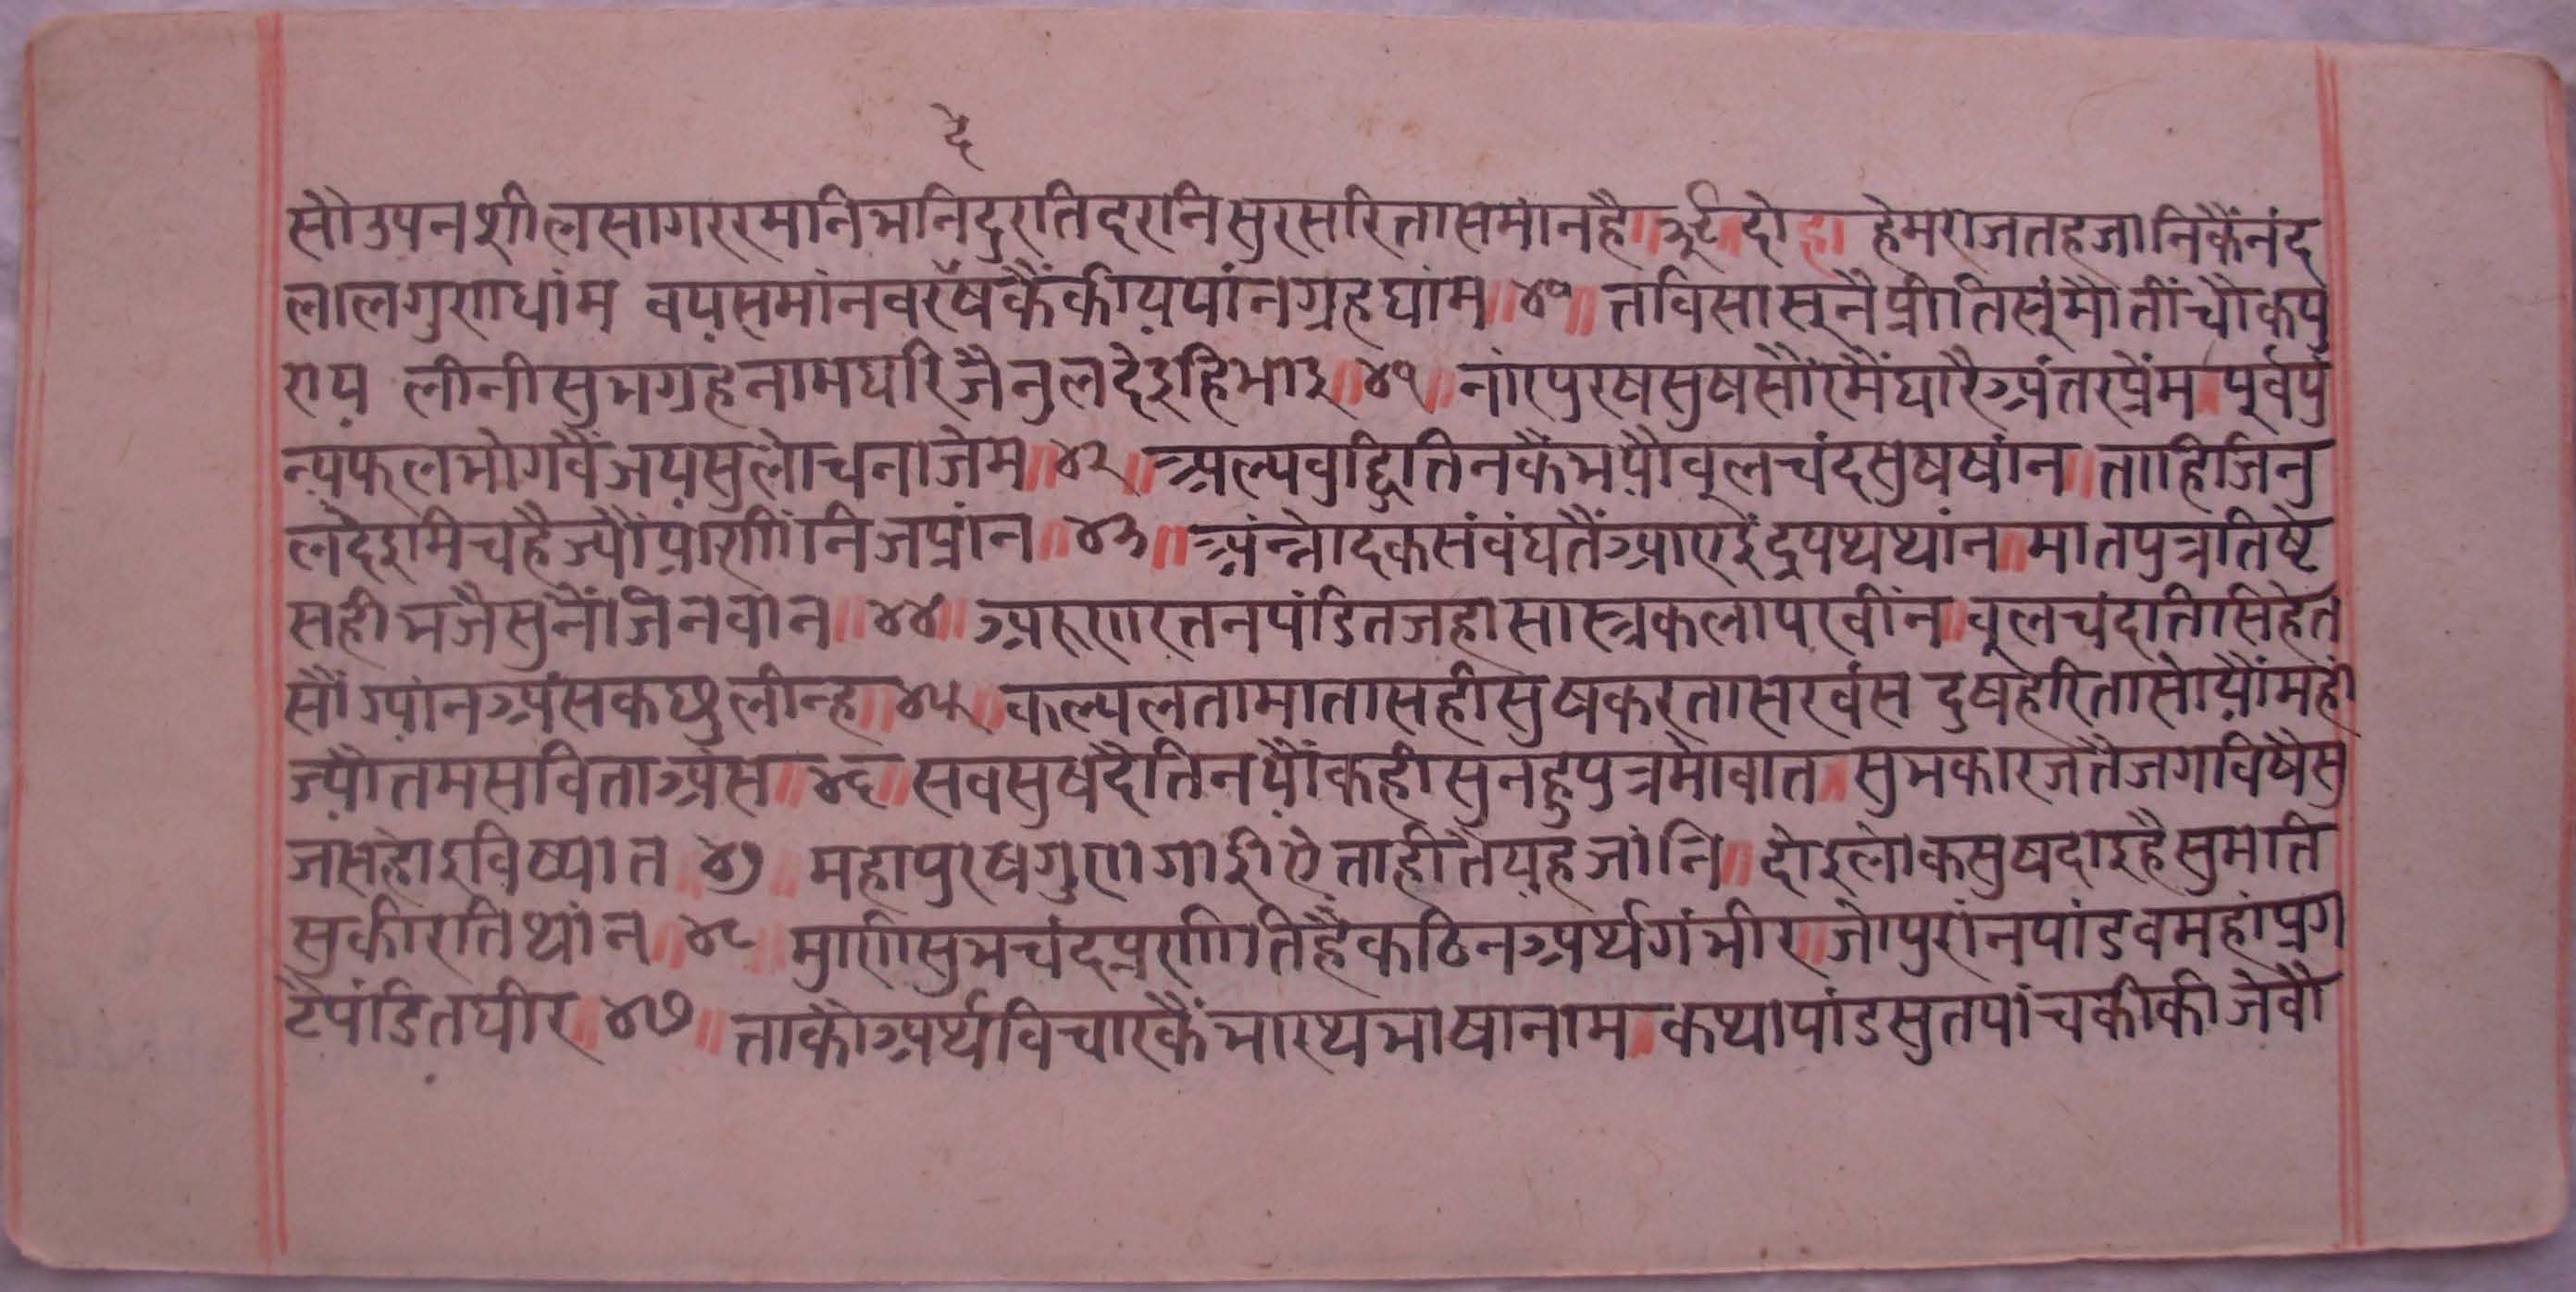 दे
सौउपनशीलसागररमानिभनिदुरतिदरनिसुरसरितासमांनहै॥३९॥दोहा॥ हेमराजतहजानिकैंनंद
लालगुणधांम वयसमांनवरषेषकैंकीयपांनग्रहधांम॥४०॥ तविसासूनैप्रीतिसूंमौतींचौकपु
राय लीनीसुभग्रहनामधरिजैनुलदेइहिभाइ॥४१॥ नारपुरषसुषसौंरमैंधारैअंतरप्रेंम॥पूर्वपु
न्यफलभोगवैंजयसुलोचनाजेम॥४२॥ अल्पवुद्धितिनकैंभयौवूलचंदसुषषांन॥ताहिजैनु
लदेइमिचहैज्यौंप्राणीनिजप्रांन॥४३॥ अंन्नोदकसंवंधतैंआएइंद्रपथथांन॥मातपुत्रतिष्टे
सहीभजैसुनैंजिनवांन॥४४॥ अरूणरतनपंडितजहासास्त्रकलापरवींन॥वूलचंदतिसिहेत
सौंग्यांनअंसकछुलीन्ह॥४५॥ कल्पलतामातासहीसुषकरतासरवंस दुषहरितासोयौंमहां
ज्यौतमसविताअंस॥४६॥ सवसुषदैतिनयौंकहीसुनहुपुत्रमोवात॥सुभकारजतैजगविषैसु
जसहोइविष्यात॥४७॥ महापुरषगुणगाइीऐताहीतैयहजांनि॥दोइलोकसुषदाइहैसुमति
सुकीरतिथांन॥४८॥ मुणिसुभचंदप्रणीतिहैकठिनअर्थगंभीर॥जोपुरांनपांडवमहांप्रग
टैपंडितधीर॥४९॥ ताकौअर्थविचारकैंभारथभाषानाम॥कथापांडसुतपांचकीकीजेवौ